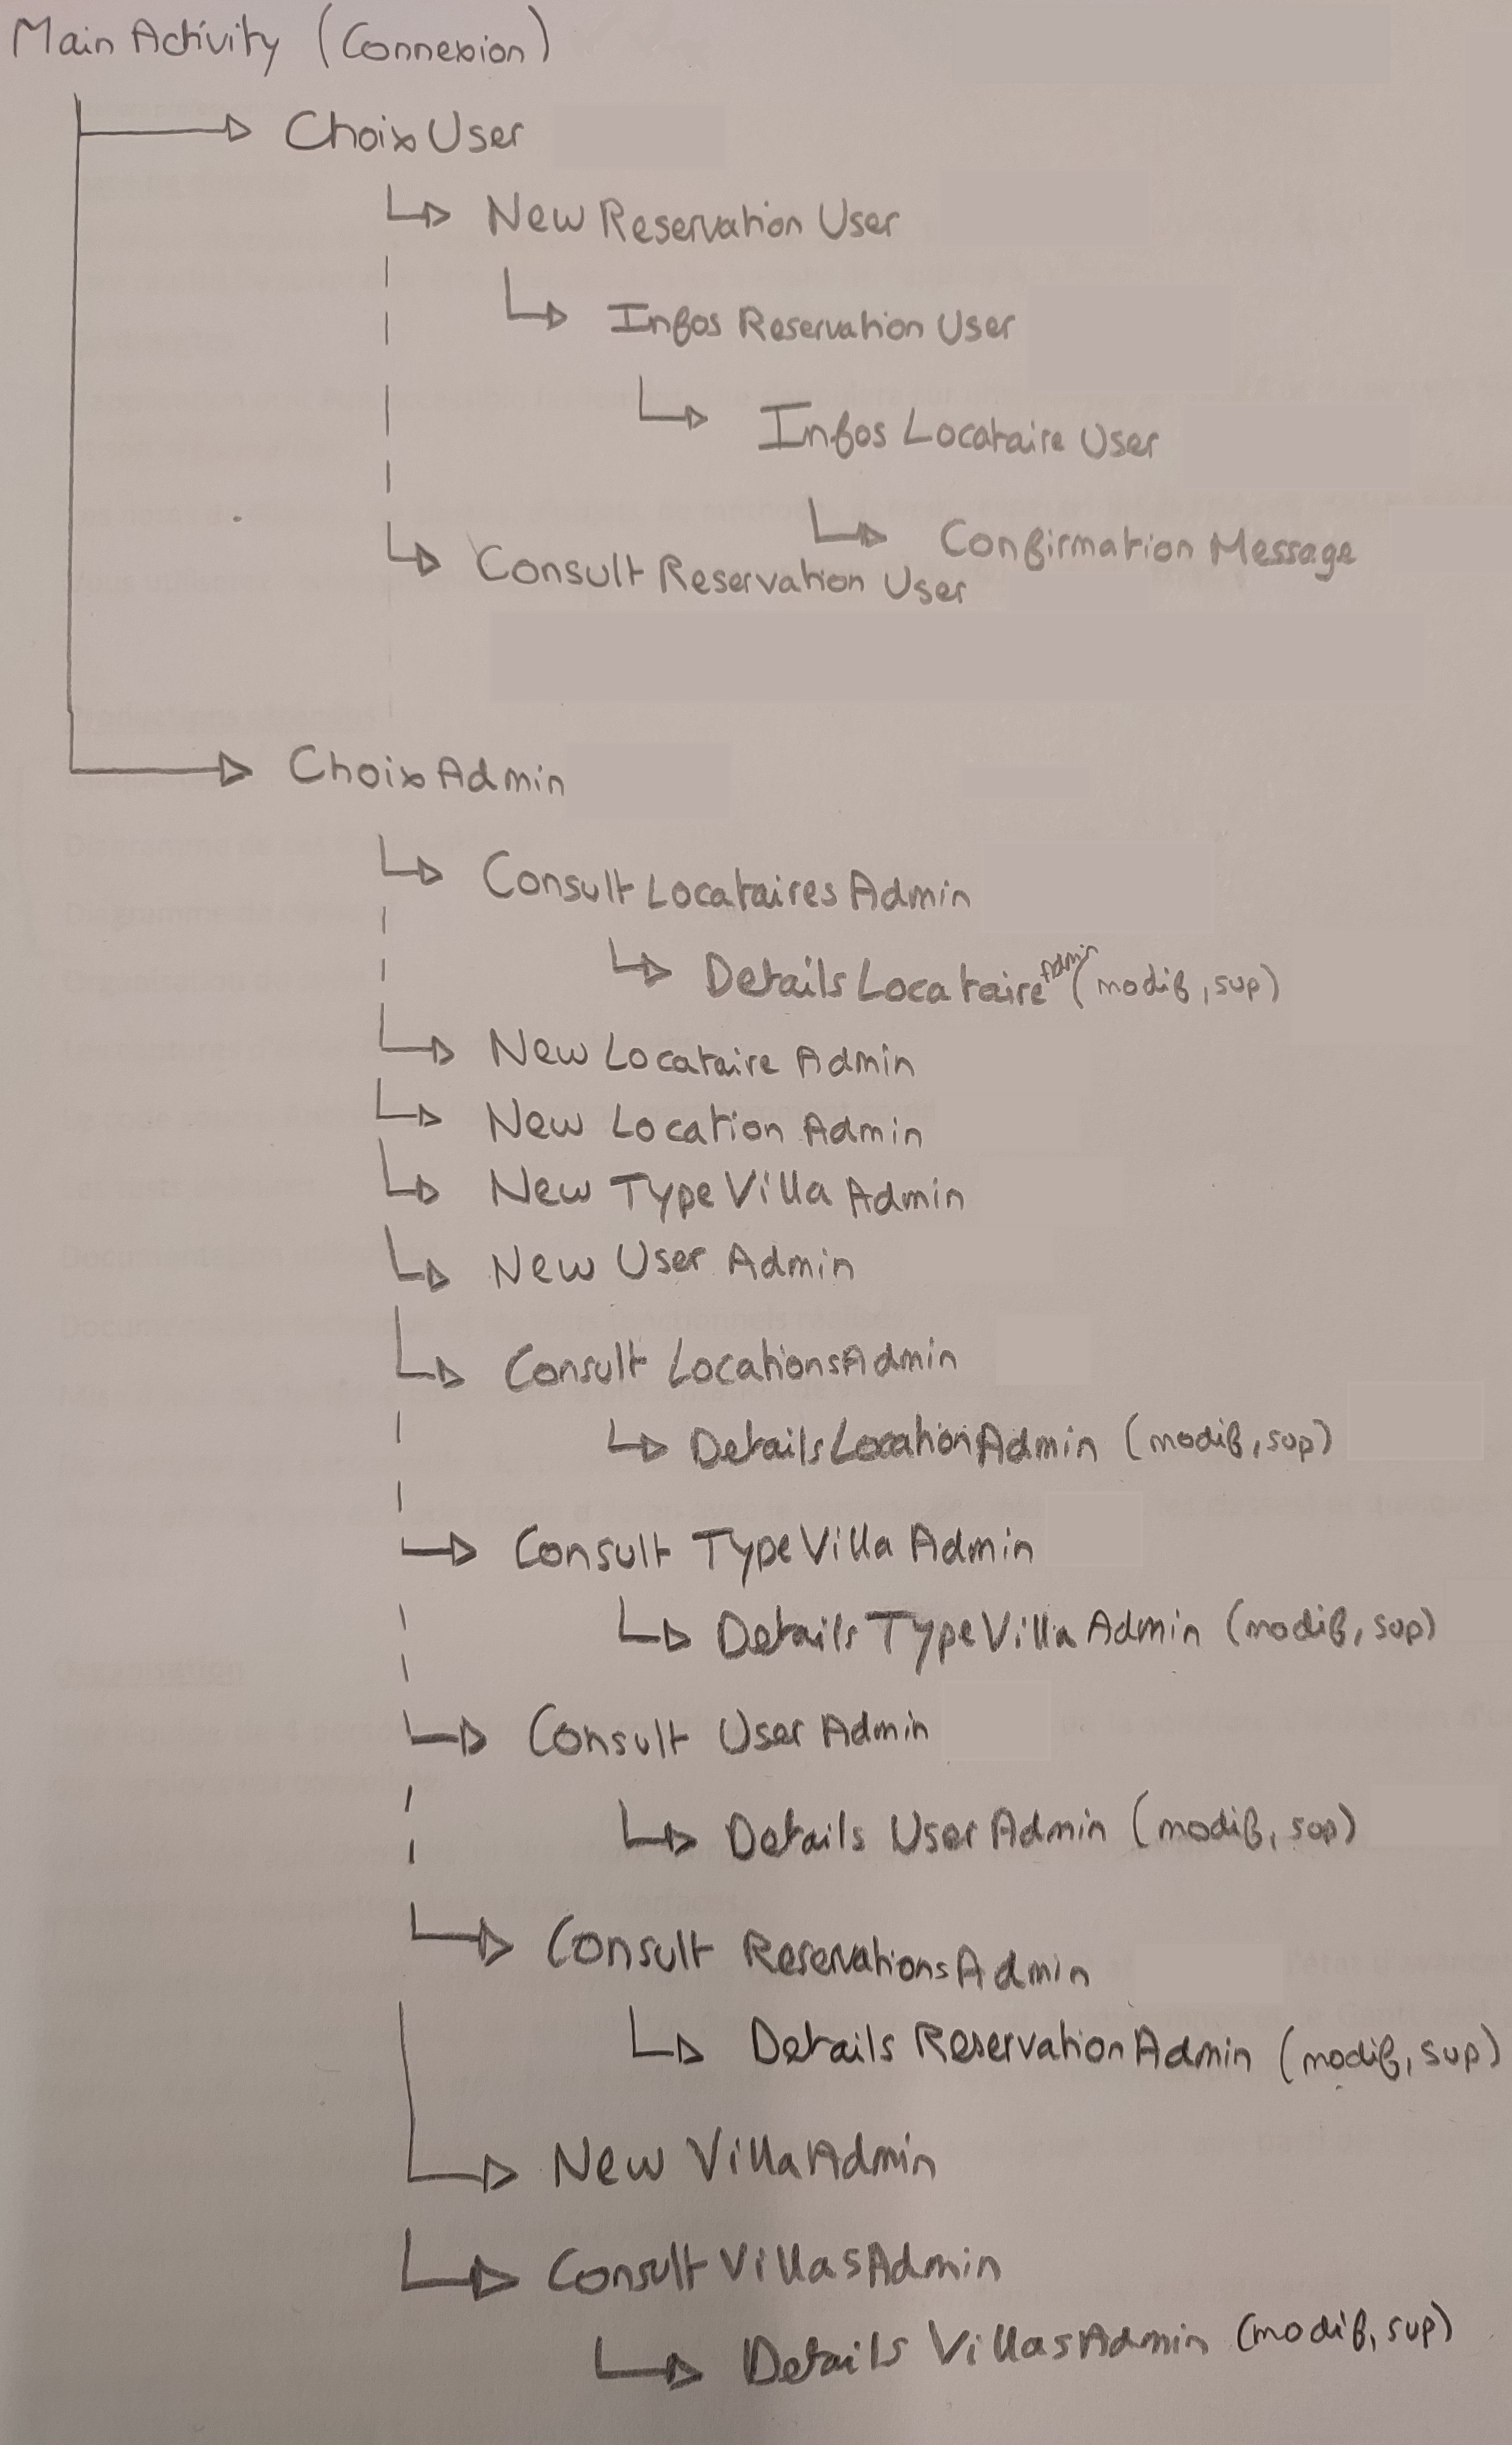 Main Activity (Connexion)
Choix User
New Reservation User
Infos Reservation User
Infos Locataire User
Confirmation Message
Consult Reservation User
Choix Admin
Consult Locataires Admin
Details Locataire Admin (modif, sup)
New Locataire Admin
New Location Admin
New Type Villa Admin
New User Admin
Consult Locations Admin
Details Location Admin (modif, sup)
Consult Type Villa Admin
Details Type Villa Admin (modif, sup)
Consult User Admin
Details User Admin (modif, sup)
Consult Reservations Admin
Details Reservation Admin (modif, sup)
New Villa Admin
Consult Villas Admin
Details Villas Admin (modif, sup)